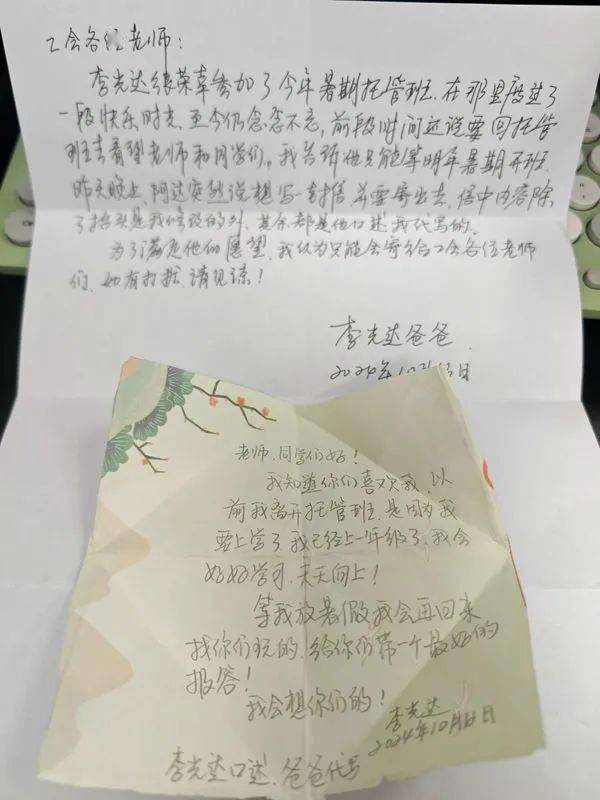 工会各位老师：
李克达很荣幸参加了今年暑期托管班，在那里度过了
一段快乐时光，至今仍念念不忘，前段时间还说要回托管
班去看望老师和同学们。我告诉他只能等明年暑期开班。
昨天晚上，阿达突然说想写一封信，并要寄出去，信中内容除
了抬头是我修改的外，其余都是他口述我代写的。
为了满足他的愿望，我认为只能会寄给工会各位老师
们，如有打扰，请见谅！
李克达爸爸
2024年10月 日
老师、同学们好！
我知道你们喜欢我，以
前我离开托管班，是因为我
要上学了，我已经上一年级了，我会
好好学习，天天向上！
等我放暑假我会再回来
找你们玩的，给你们带一个最好的
报答！
我会想你们的！
李克达
2024年10月 日
李克达口述，爸爸代写